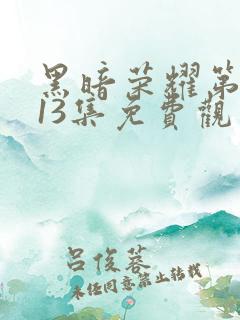 黑暗荣耀第
13集免費觀
吕俊蓉
未任同意禁止转载